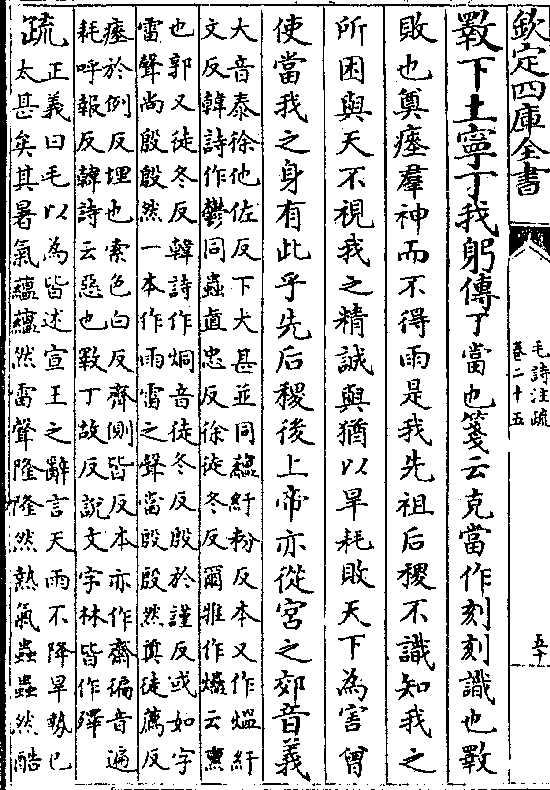 欽定四庫全書
毛詩注疏
卷二十五
五十
斁下土寧丁我躬傳丁當也箋云克當作刻刻識也斁
敗也奠瘞羣神而不得雨是我先祖后稷不識知我之
所困與天不視我之精誠與猶以旱耗敗天下為害曾
使當我之身有此乎先后稷後上帝亦從宮之郊音義
大音泰徐他佐反下大甚並同蘊紆粉反本又作熅紆
文反韓詩作鬱同蟲直忠反徐徒冬反爾雅作爞云熏
也郭又徒冬反韓詩作烔音徒冬反殷於謹反或如字
雷聲尚殷殷然一本作雨雷之聲當殷殷然奠徒薦反
瘞於例反埋也索色白反齊側皆反本亦作齋徧音遍
耗呼報反韓詩云惡也斁丁故反說文字林皆作殬
疏正義曰毛以為皆述宣王之辭言天雨不降旱勢已
太甚矣其暑氣蘊蘊然雷聲隆隆然熱氣蟲蟲然酷